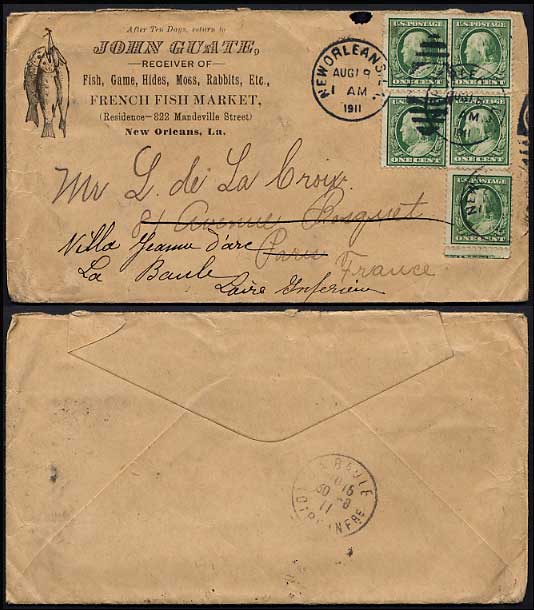 After Ten Days, return to
JOHN GUATE,
RECEIVER OF
Fish, Game, Hides, Moss, Rabbits, Etc.,
FRENCH FISH MARKET,
(Residence—822 Mandeville Street)
New Orleans, La.
NEW ORLEANS
AUG 19
1 AM
1911
U.S. POSTAGE
U.S. POSTAGE
ONE CENT
ONE CENT
U.S. POSTAGE
U.S. POSTAGE
ONE CENT
ONE CENT
U.S. POSTAGE
ONE CENT
Mr L. de La Croix
21 Avenue Bosquet
Villa Jeanne d'arc Paris
La Baule France
Loire Inferieure
LA BAULE
30 -8
11
LOIRE INFRE